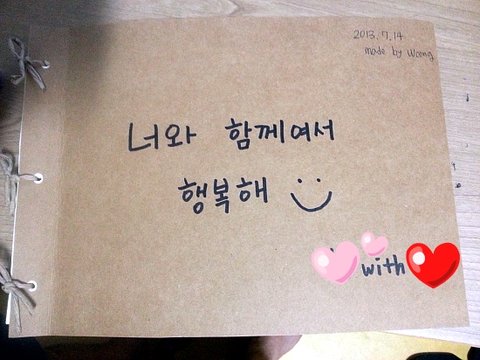 2013. 7. 14
made by Woong
너와 함께여서
행복해
with